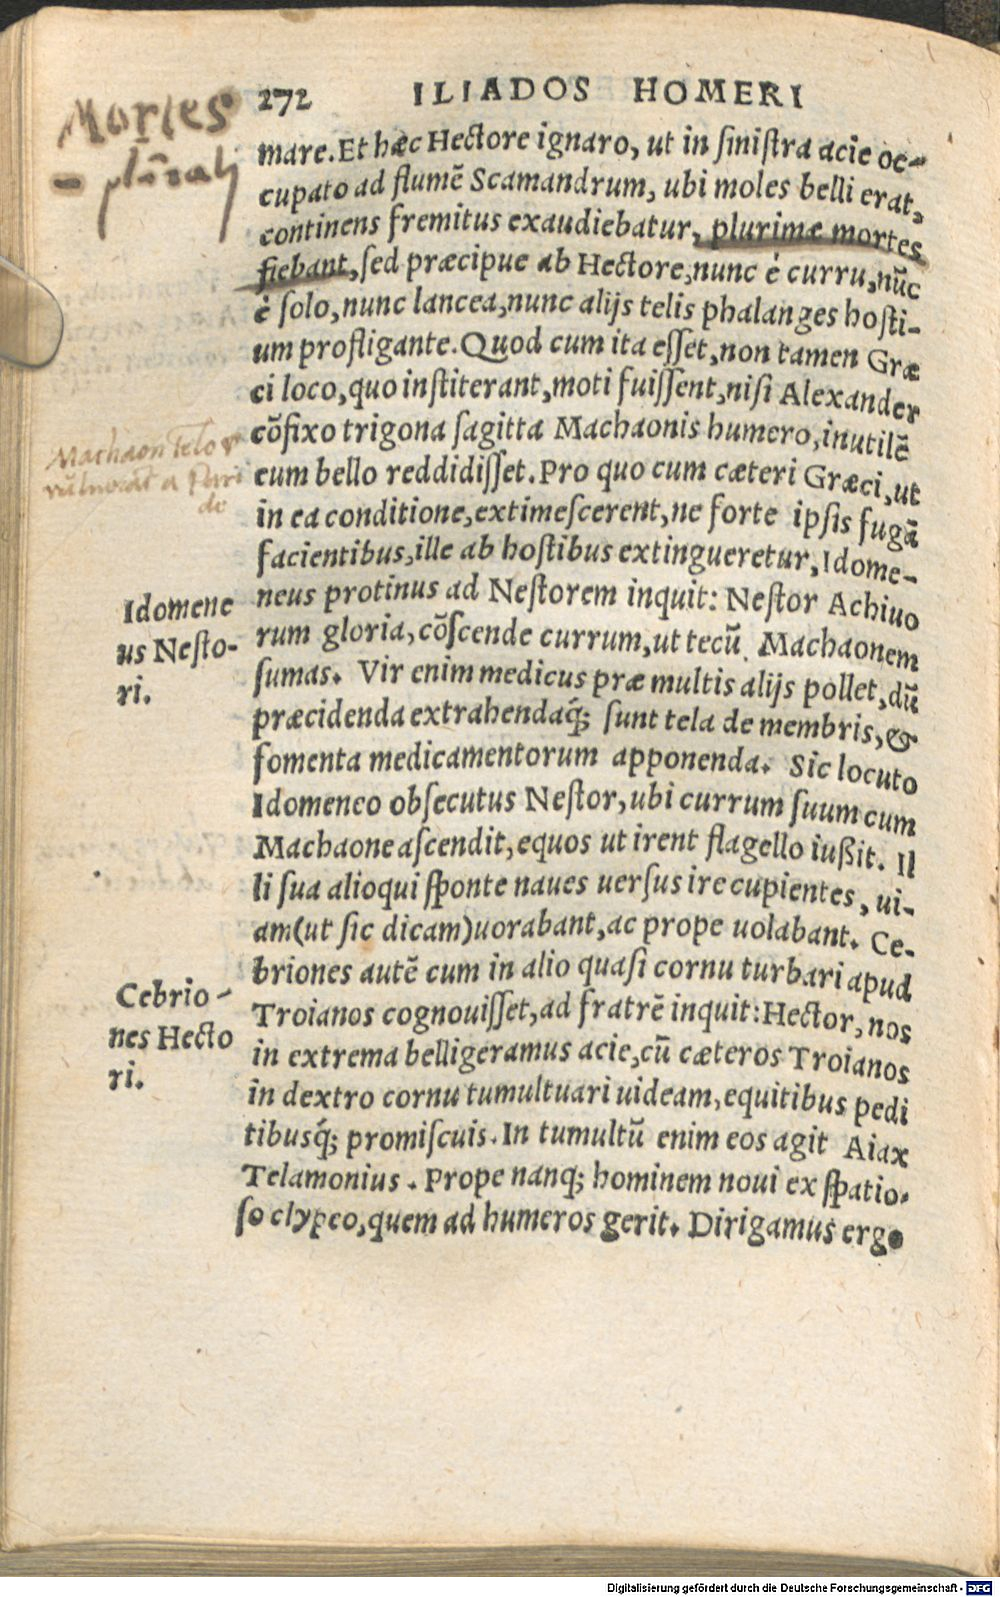 272 ILIADOS HOMERI
Mortes
plũrali
mare. Et hæc Hectore ignaro, ut in sinistra acie oc-
cupato ad flumẽ Scamandrum, ubi moles belli erat,
continens fremitus exaudiebatur, plurimæ mortes
fiebant, sed præcipue ab Hectore, nunc è curru, nũc
è solo, nunc lancea, nunc alijs telis phalanges hosti-
um profligante. Quod cum ita esset, non tamen Græ
ci loco, quo institerant, moti fuissent, nisi Alexander
cõfixo trigona sagitta Machaonis humero, inutilẽ
eum bello reddidisset. Pro quo cum cæteri Græci, ut
Machaon telo
vulnerat a Pari
de
in ea conditione, extimescerent, ne forte ipsis fugã
facientibus, ille ab hostibus extingueretur, Idome-
neus protinus ad Nestorem inquit: Nestor Achiuo
Idomene
us Nesto-
ri.
rum gloria, cõscende currum, ut tecũ Machaonem
sumas. Vir enim medicus præ multis alijs pollet, dũ
præcidenda extrahendaq́; sunt tela de membris, &
fomenta medicamentorum apponenda. Sic locuto
Idomeneo obsecutus Nestor, ubi currum suum cum
Machaone ascendit, equos ut irent flagello iußit. Il
li sua alioqui sponte naues uersus ire cupientes, ui-
am (ut sic dicam) uorabant, ac prope uolabant. Ce-
briones autẽ cum in alio quasi cornu turbari apud
Cebrio-
nes Hecto
ri.
Troianos cognouisset, ad fratrẽ inquit: Hector, nos
in extrema belligeramus acie, cũ cæteros Troianos
in dextro cornu tumultuari uideam, equitibus pedi
tibusq́; promiscuis. In tumultũ enim eos agit Aiax
Telamonius. Prope nanq; hominem noui ex spatio-
so clypeo, quem ad humeros gerit. Dirigamus ergo
Digitalisierung gefördert durch die Deutsche Forschungsgemeinschaft - DFG